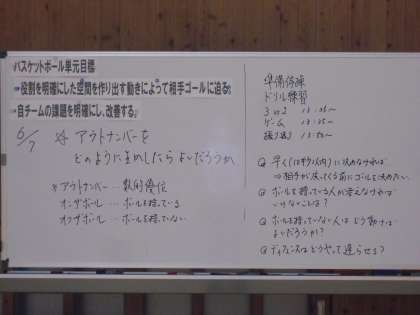 バスケットボール単元目標
・役割を明確にした空間を作り出す動きによって相手ゴールに迫る。
・自チームの課題を明確にし、改善する。
6/7 ☆ アウトナンバーを
どのように
したらよいだろうか
※アウトナンバー…数的優位
オンザボール…ボールを持っている
オフザボール…ボールを持っていない
準備体操
ドリル練習
3対2
ゲーム
振り返り
Q 早く(8秒以内)に決めなければ
⇒相手が戻ってくる前にゴールを決めたい。
Q ボールを持っている人が考えなければ
いけないことは?
Q ボールを持っていない人はどう動けば
よいだろうか?
Q ディフェンスはどうやって遅らせる?